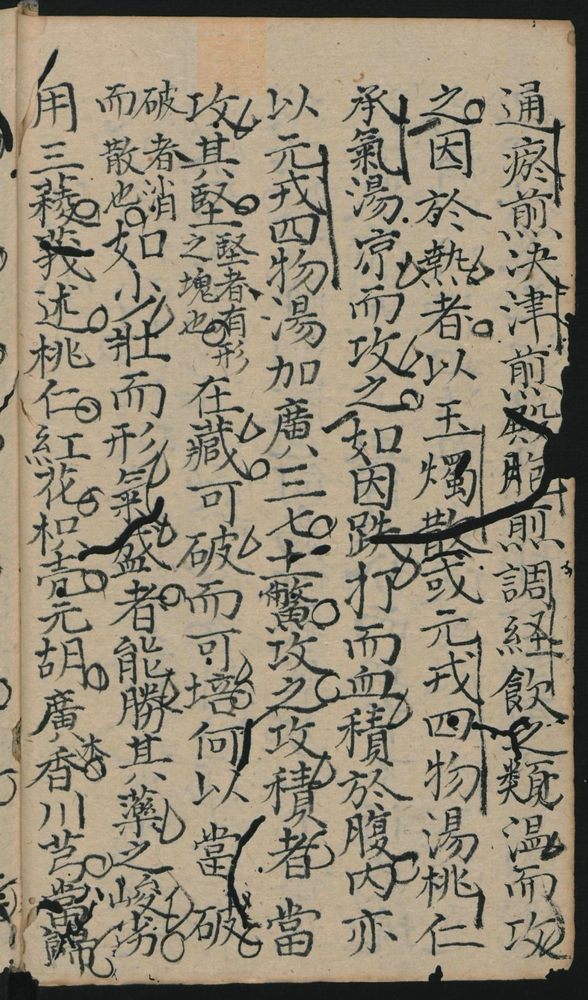 通瘀煎决津煎殿胞煎調経飲之類温而攻
之因於熱者以玉燭散或元戎四物湯桃仁
承氣湯凉而攻之如因跌打而血積於腹内亦
以元戎四物湯加廣三七土鱉攻之攻積者當
攻其堅堅者有形之塊也在藏可破而可培何以當破
破者消而散也如少壯而形氣盛者能勝其藥之峻劣
用三蕤莪述桃仁紅花枳壳元胡廣木香川芎當歸